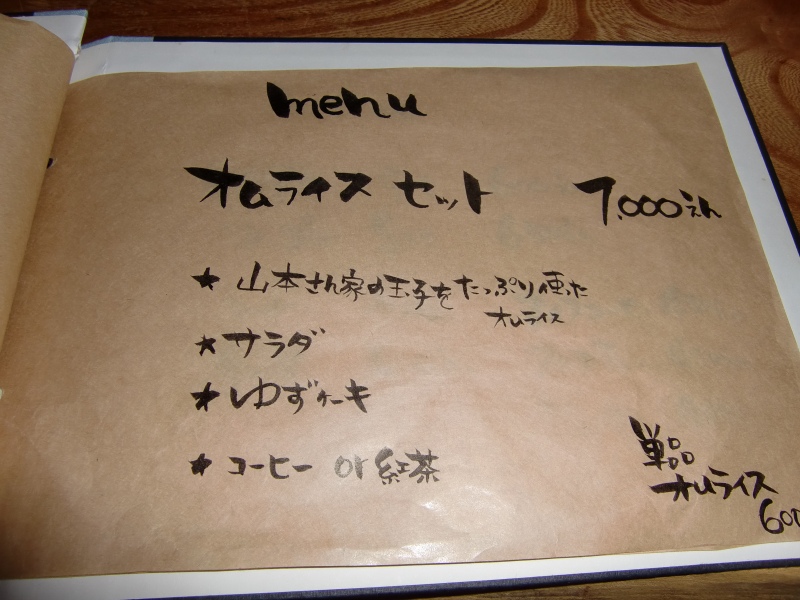 menu
オムライス セット 1,000えん
★ 山本さん家の玉子をたっぷり使った
オムライス
★ サラダ
★ ゆずケーキ
★ コーヒー or 紅茶
単品
オムライス
600